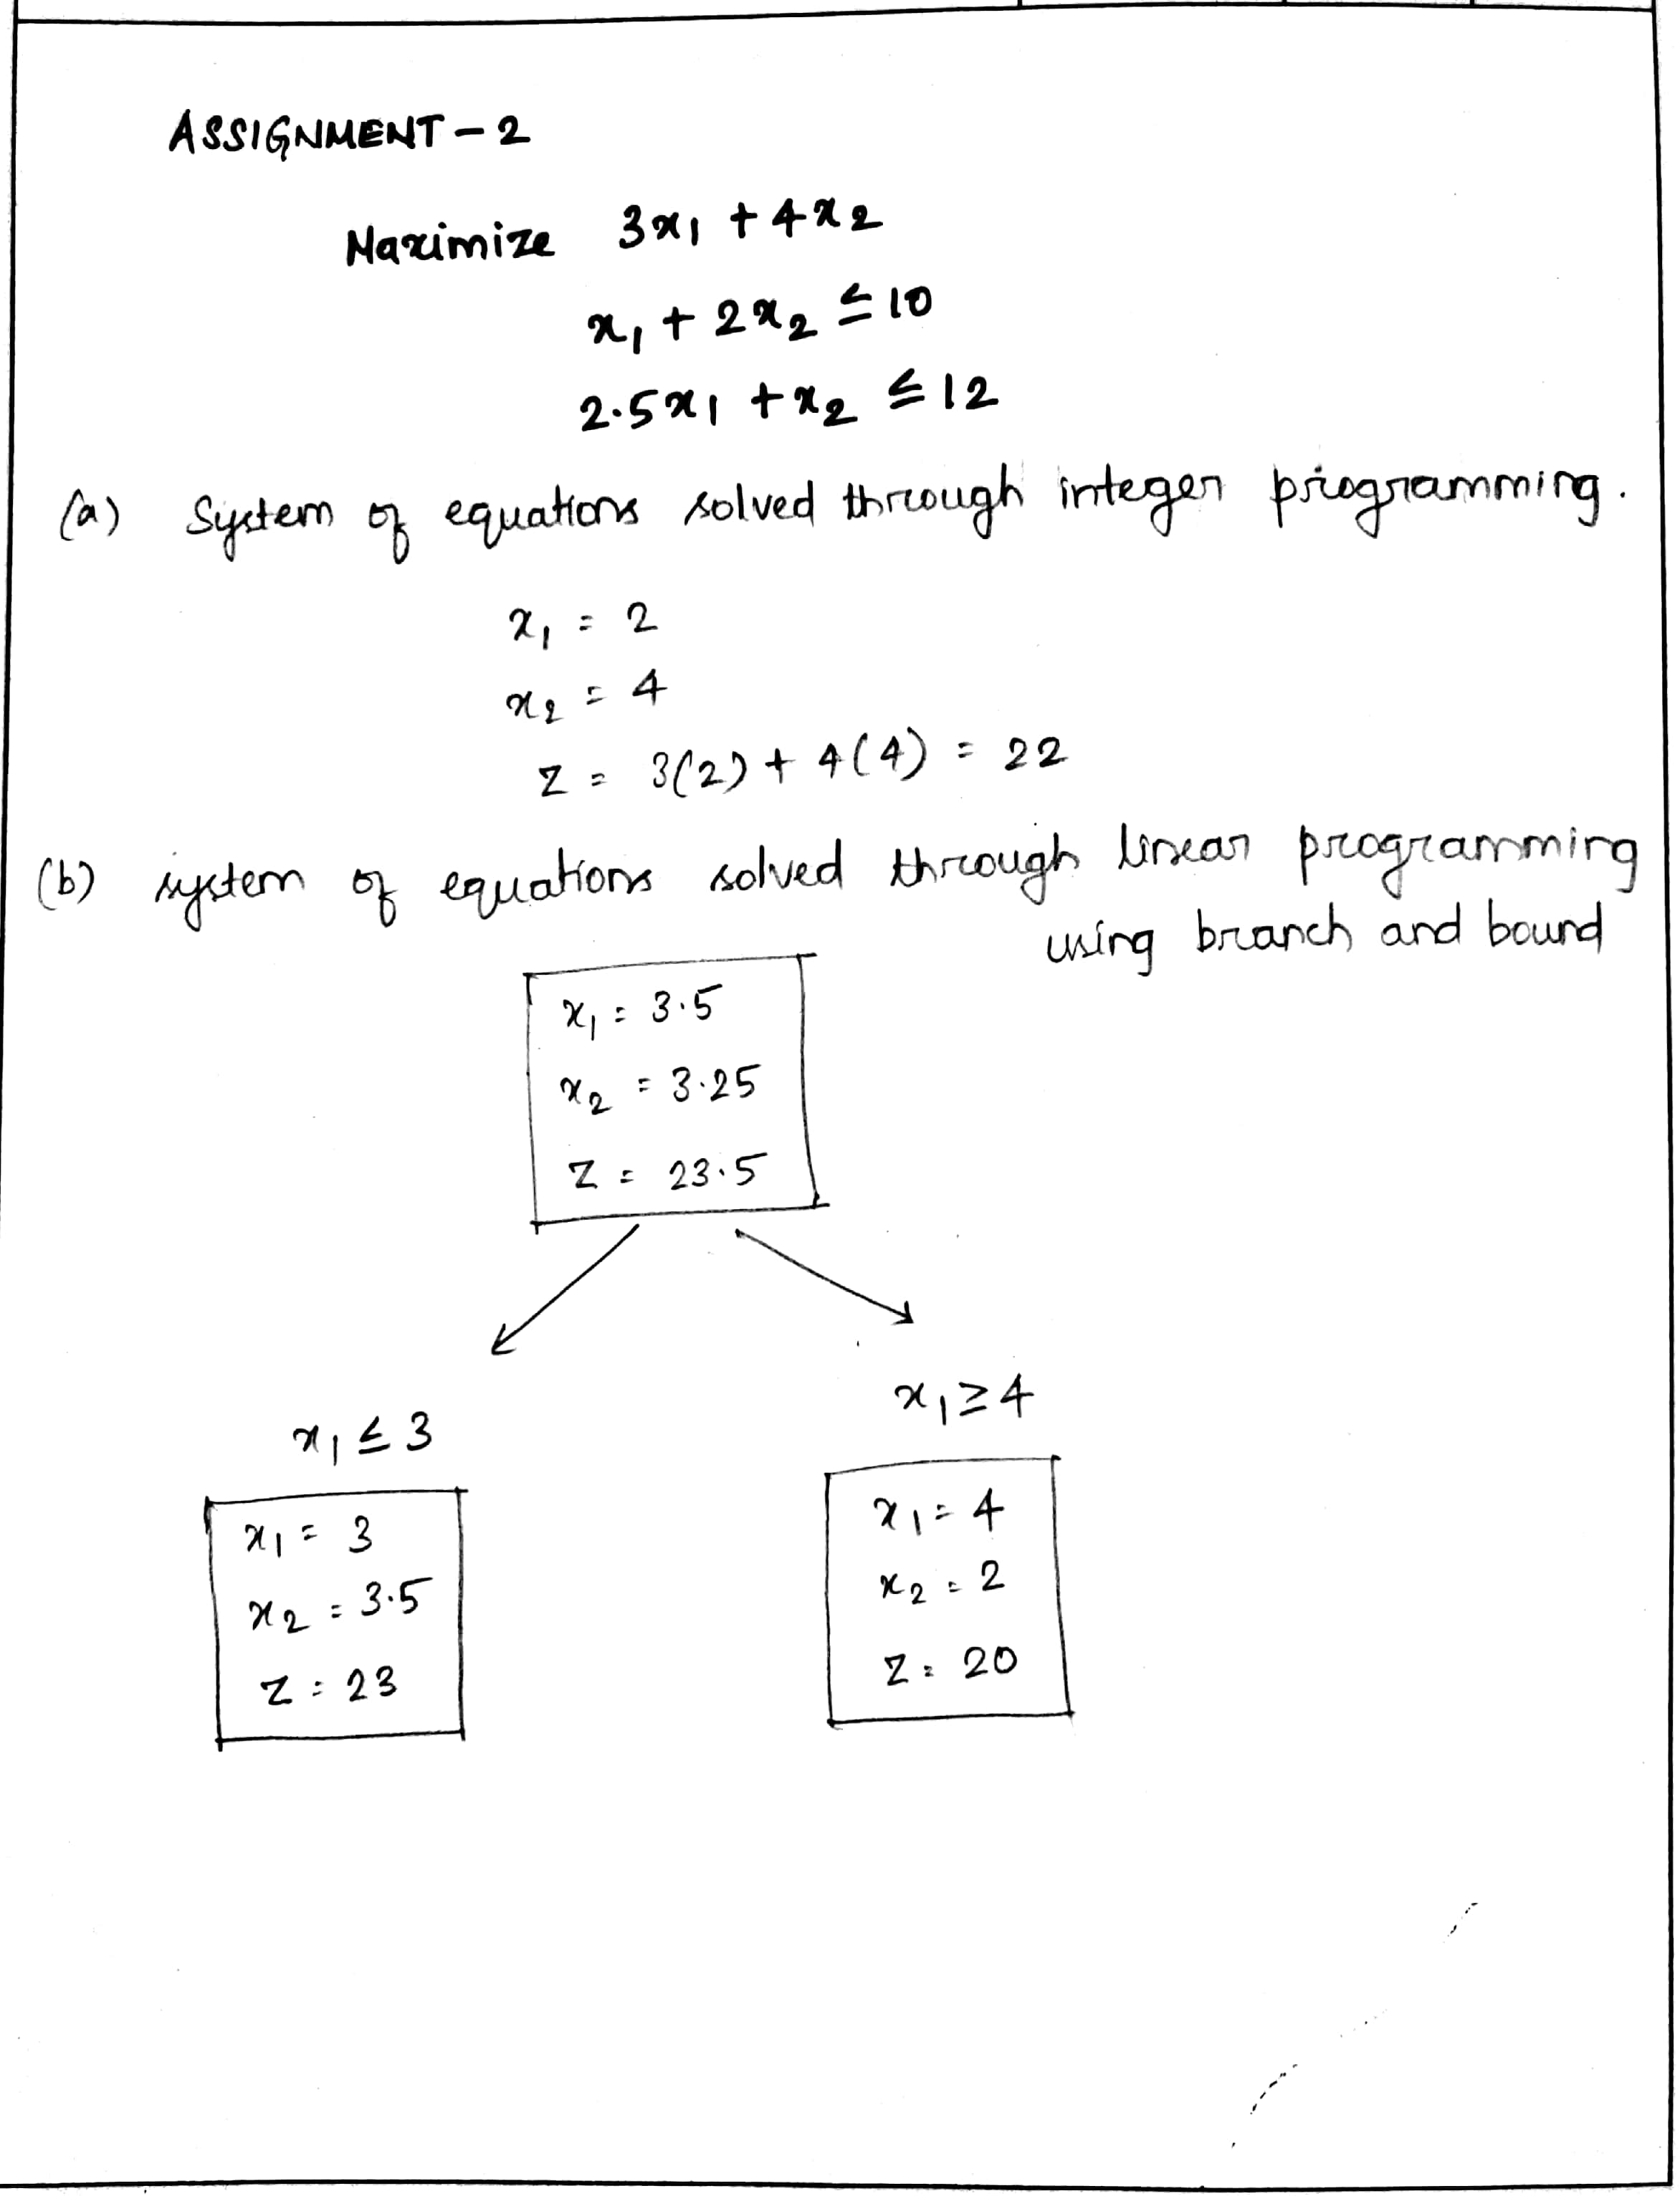 ASSIGNMENT - 2
Maximize 3x1 + 4x2
x1 + 2x2 ≤ 10
2.5x1 + x2 ≤ 12
(a) System of equations solved through integer programming.
x1 = 2
x2 = 4
Z = 3(2) + 4(4) = 22
(b) system of equations solved through linear programming
using branch and bound
x1 = 3.5
x2 = 3.25
Z = 23.5
x1 ≤ 3
x1 = 3
x2 = 3.5
Z = 23
x1 ≥ 4
x1 = 4
x2 = 2
Z = 20